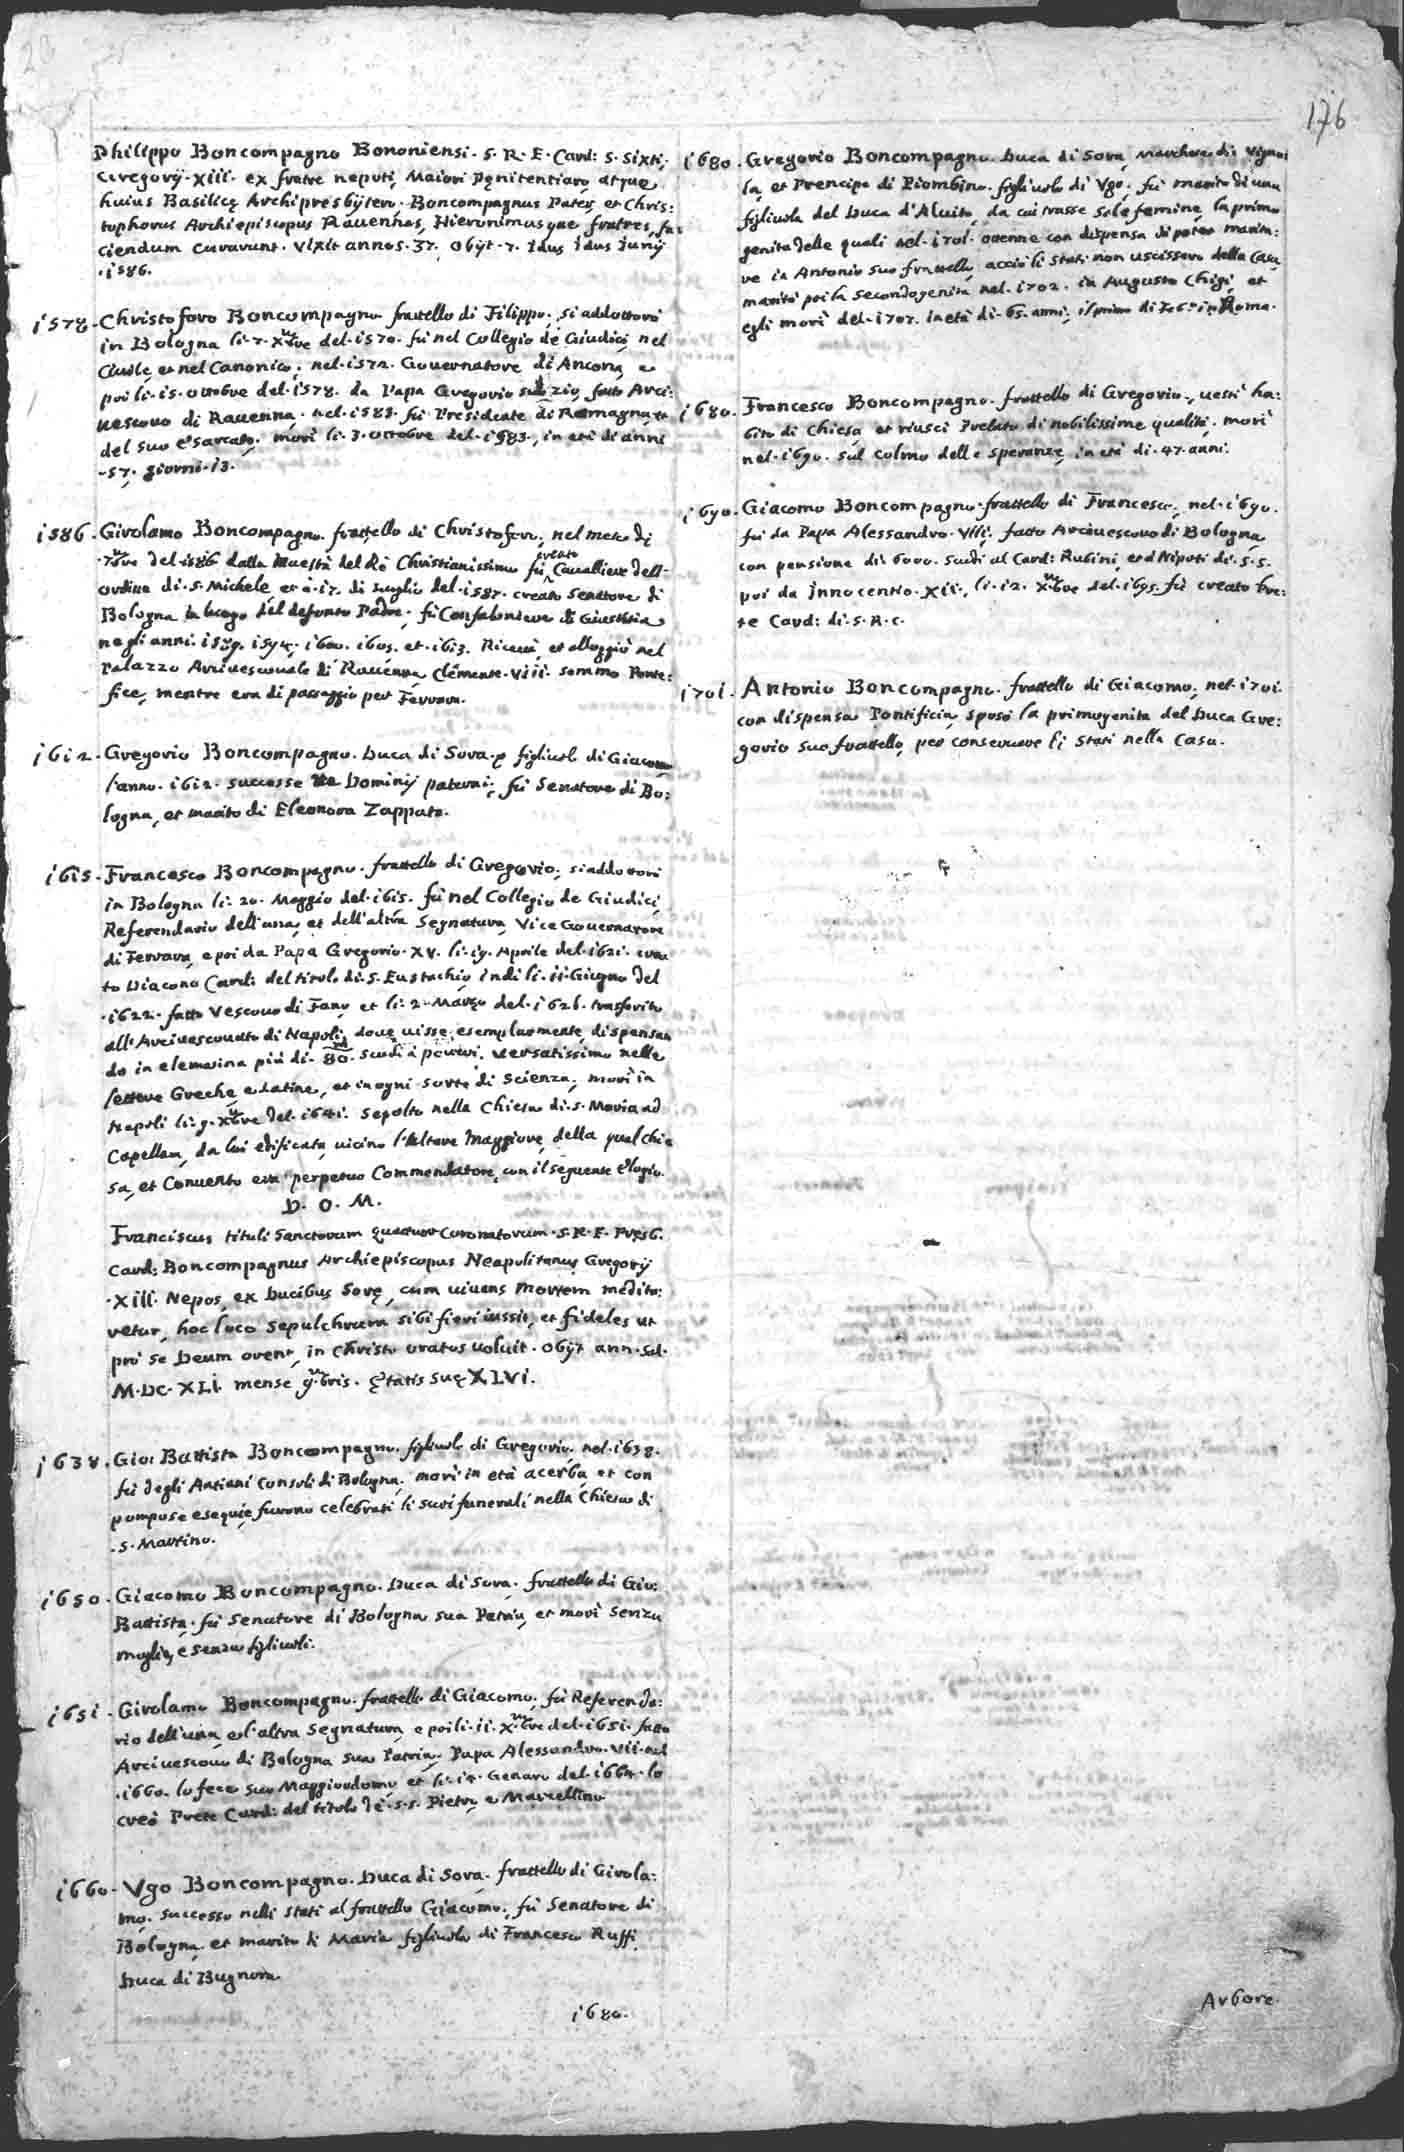 176
Philippo Boncompagno Bononiensi. S. R. E. Card: S. Sixti,
Gregorÿ. XIII. ex fratre nepoti, Maiori Pęnitentiaro, atque
huius Basilicę Archipresbÿtero. Boncompagnus Pater, et Chris:
tophorus Archiepiscopus Rauennas, Hieronimusque fratres, fa:
ciendum curavunt. Vixit annos. 37. Obÿt. 7. Idus Idus Junÿ
.1586.
1578. Christoforo Boncompagno fratello di Filippo, si addottorò
in Bologna li. 7. Xbre del. 1570. fù nel Collegio de Giudici, nel
Ciuile, et nel Canonico; nel. 1572. Gouernatore di Ancona, e
poi li. 15. Ottobre del. 1578. da Papa Gregorio suo zio, fatto Arci:
uescouo di Rauenna. nel. 1583. fù Presidente di Romagna, et
del suo Esarcato. morì li. 3. Ottobre del. 1583., in età di anni
.57. giorni. 13.
1586. Girolamo Boncompagno. fratello di Christoforo, nel mese di
.7bre del. 1586. dalla Maestà del Rè Christianissimo fù creato Caualliere dell'
ordine di. S. Michele, et à. 17. di Luglio del. 1587. creato Senatore di
Bologna in luogo del defonto Padre. fù Confaloniere di Giustitia
negli anni. 1589. 1594. 1600. 1605. et. 1613. Riceuè, et alloggiò nel
Palazzo Arciuescouale di Rauenna Clemente. VIII. sommo Ponte:
fice, mentre era di passaggio per Ferrara.
1612. Gregorio Boncompagno. Duca di Sora. figliuolo di Giacomo
l'anno. 1612. successe ne Dominÿ paterni; fù Senatore di Bo:
logna, et marito di Eleonora Zappata.
1615. Francesco Boncompagno. fratello di Gregorio, si addottorò
in Bologna li: 20. Maggio del. 1615. fù nel Collegio de Giudici,
Referendario dell'una, et dell'altra Segnatura, Vice Gouernatore
di Ferrara, e poi da Papa Gregorio. XV. li. 19. Aprile del. 1621. crea
to Diacono Card: del titolo di. S. Eustachio, indi li. 11. Giugno del
.1622. fatto Vescouo di Fano, et li: 2. Marzo del. 1626. trasferito
all'Arciuescouato di Napoli, doue uisse esemplarmente, dispensan
do in elemosina più di. 80. scudi à poueri. Versatissimo nelle
lettere Greche, e Latine, et in ogni sorte di Scienza; morì in
Napoli li: 9. Xbre del. 1641. sepolto nella Chiesa di. S. Maria ad
Capellam, da lui edificata, uicino l'Altare Maggiore, della qual Chie
sa, et Conuento era perpetuo Commendatore, con il seguente Elogio.
D. O. M.
Franciscus tituli Sanctorum quatuor Coronatorum. S. R. E. Presb.
Card: Boncompagnus Archiepiscopus Neapolitanus, Gregorÿ
.XIII. Nepos, ex Ducibus Sorę, cum uiuens mortem medita:
retur, hoc loco sepulchrum sibi fieri iussit, et fideles ut
pro se Deum orent, in Christo oratos uoluit. Obÿt ann. Sal.
M. DC. XLI. mense 9bris. Ętatis Suę XLVI.
1638. Gio: Battista Boncompagno. figliuolo di Gregorio, nel. 1638.
fù degli Antiani Consoli di Bologna; morì in età acerba, et con
pompose esequie furono celebrati li suoi funerali nella Chiesa di
.S. Martino.
1650. Giacomo Boncompagno. Duca di Sora. fratello di Gio:
Battista. fù Senatore di Bologna sua Patria, et morì senza
moglie, e senza figliuoli.
1651. Girolamo Boncompagno. fratello di Giacomo, fù Referenda:
rio dell'una, e l'altra Segnatura, e poi li. 11. Xbre del. 1651. fatto
Arciuescouo di Bologna sua Patria. Papa Alessandro. VII. nel
.1660. lo fece suo Maggiordomo, et li. 14. Genaro del. 1664. lo
creò Prete Card: del titolo de. S. S. Pietro, e Marcellino
1660. Vgo Boncompagno. Duca di Sora. fratello di Girola:
mo. successo nelli stati al fratello Giacomo; fù Senatore di
Bologna, et marito di Maria figliuola di Francesco Ruffi
Duca di Bagnara.
1680.
1680. Gregorio Boncompagno. Duca di Sora, Marchese di Vigno
la, et Prencipe di Piombino. figliuolo di Vgo, fù marito di una
figliuola del Duca d'Aluito, da cui trasse sole femine, la primo
genita delle quali nel. 1701. ottenne con dispensa di poter marita:
re in Antonio suo fratello, acciò li stati non uscissero dalla Casa,
maritò poi la Secondogenita nel. 1702. in Augusto Chigi, et
egli morì del. 1707. in età di. 65. anni, il primo di Febo. in Roma.
1680. Francesco Boncompagno. fratello di Gregorio, uestì ha:
bito di Chiesa, et riuscì Prelato di nobilissime qualità. morì
nel. 1690. sul colmo delle speranze, in età di. 47. anni.
1690. Giacomo Boncompagno. fratello di Francesco, nel. 1690.
fù da Papa Alessandro. VIII. fatto Arciuescouo di Bologna,
con pensione di 6000. scudi al Card: Rubini, et d Nipoti di. S. S.
poi da Innocentio. XII., li. 12. Xbre del. 1695. fù creato Pre:
te Card: di. S. R. C.
1701. Antonio Boncompagno. fratello di Giacomo, nel. 1701.
con dispensa Pontificia, sposò la primogenita del Duca Gre:
gorio suo fratello, per conseruare li Stati nella Casa.
Arbore.